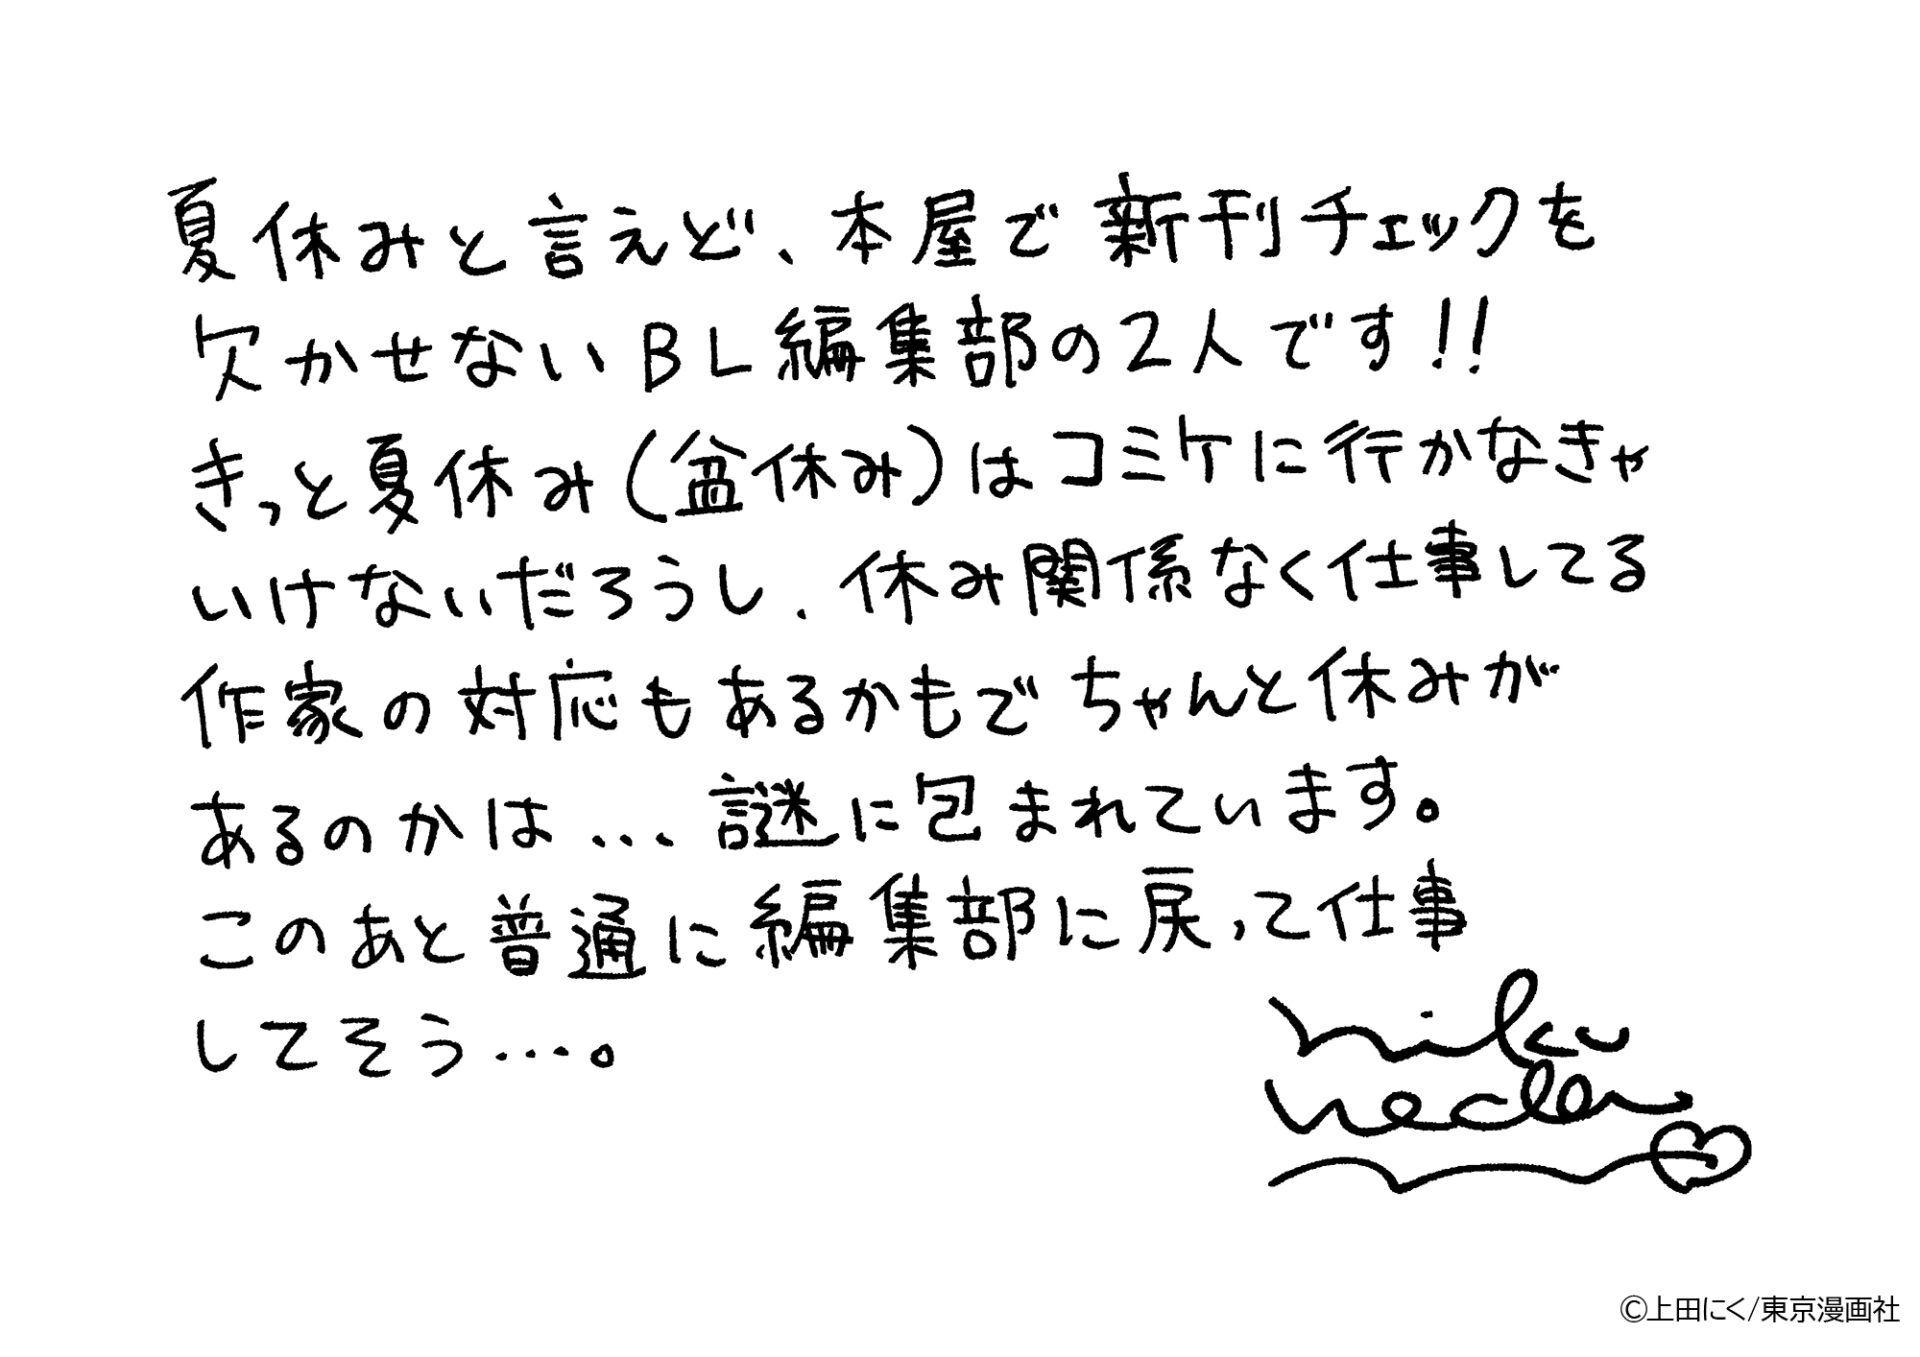 夏休みと言えど、本屋で新刊チェックを
欠かせないBL編集部の2人です!!
きっと夏休み(盆休み)はコミケに行かなきゃ
いけないだろうし、休み関係なく仕事してる
作家の対応もあるかもでちゃんと休みが
あるのかは...謎に包まれています。
このあと普通に編集部に戻って仕事
してそう...。
niku
ueda
©上田にく/東京漫画社